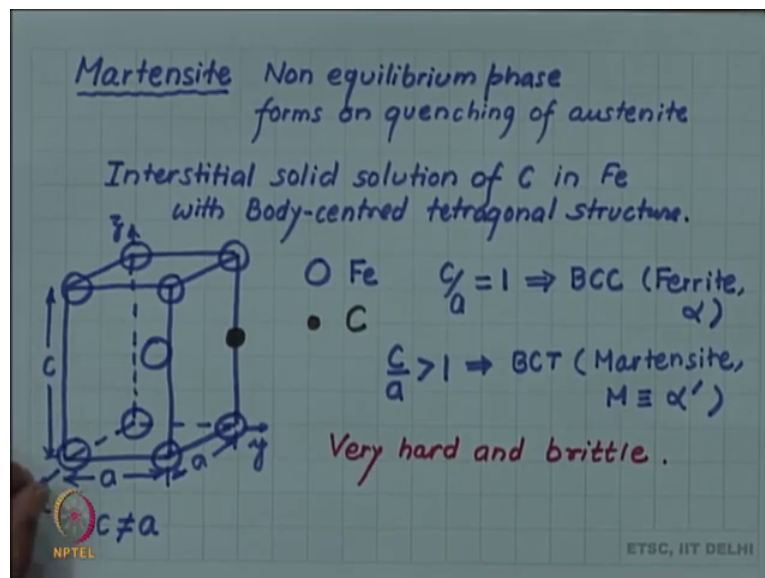 Martensite Non equilibrium phase
forms on quenching of austenite
Interstitial solid solution of C in Fe
with Body-centred tetragonal structure.
z
Fe c/a = 1 ⇒ BCC (Ferrite,
α)
C
c
c/a > 1 ⇒ BCT (Martensite,
M ≡ α′)
a
a
y
Very hard and brittle.
c ≠ a
NPTEL
ETSC, IIT DELHI